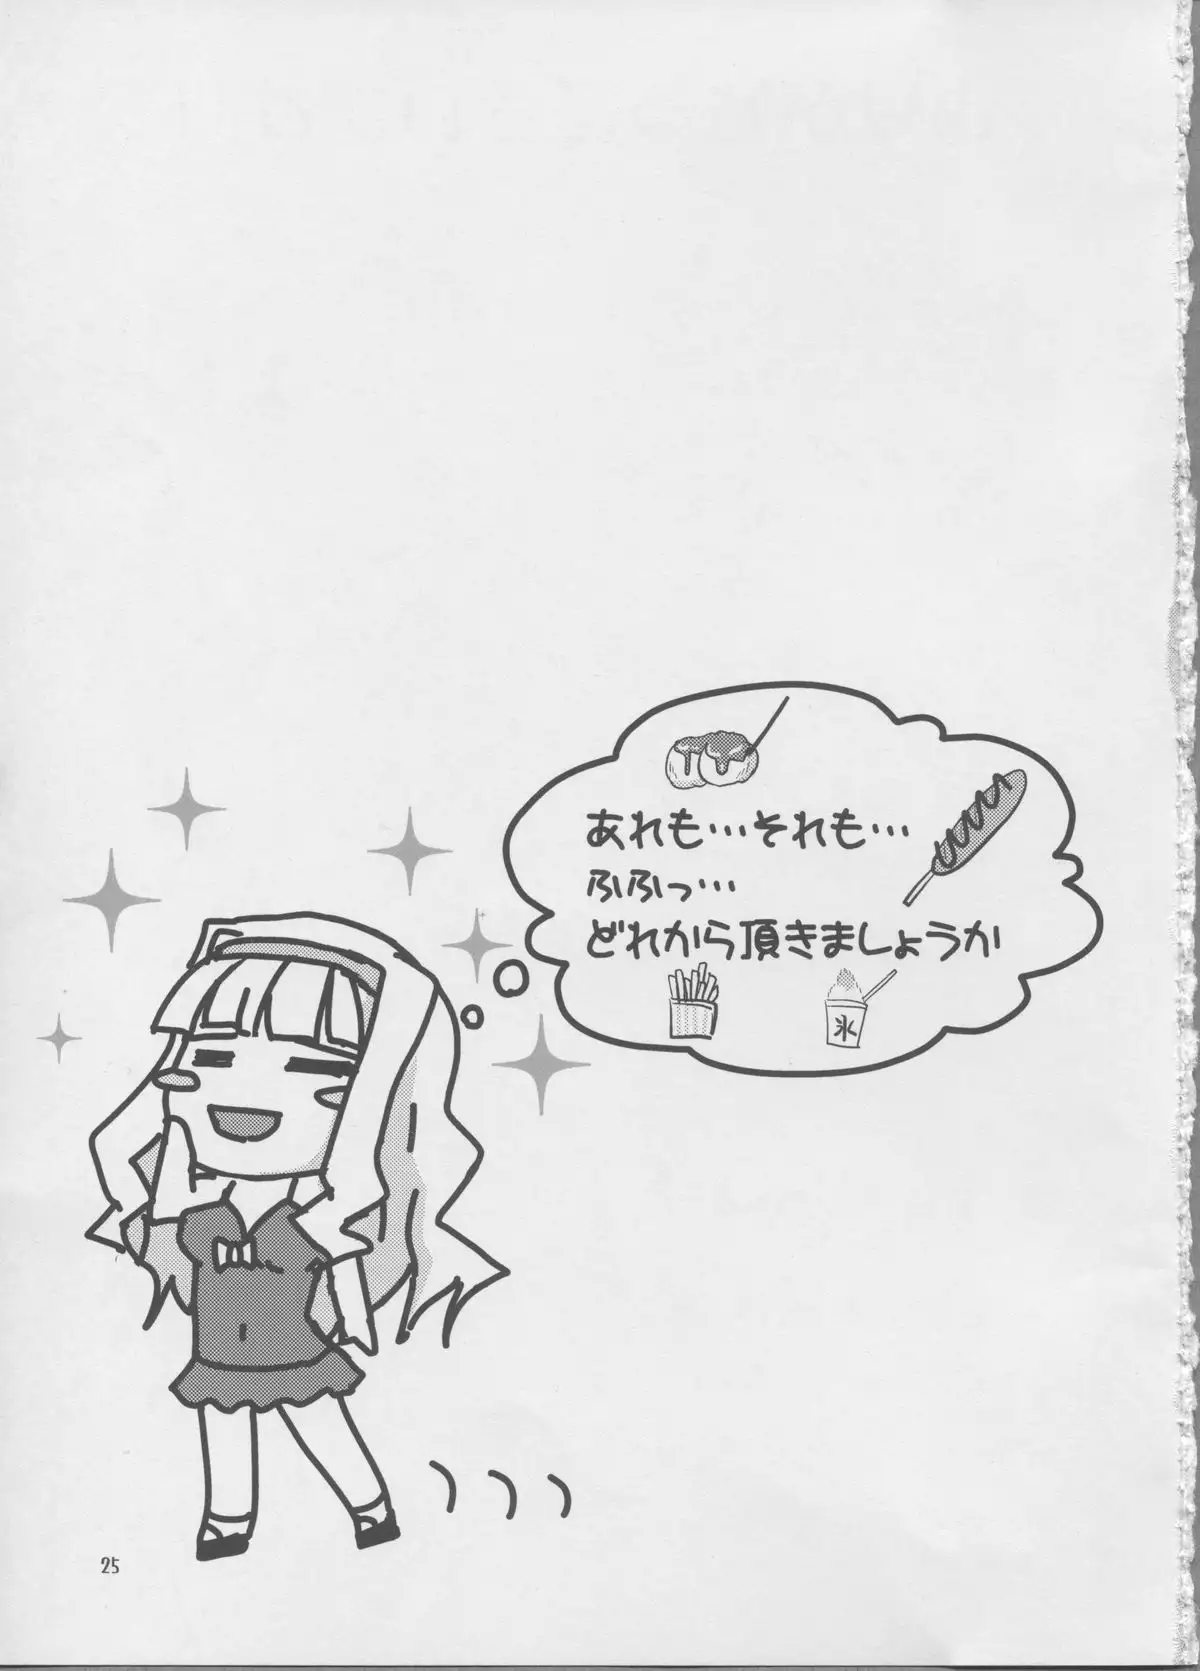 あれも…それも…
ふふっ…
どれから頂きましょうか
氷
25